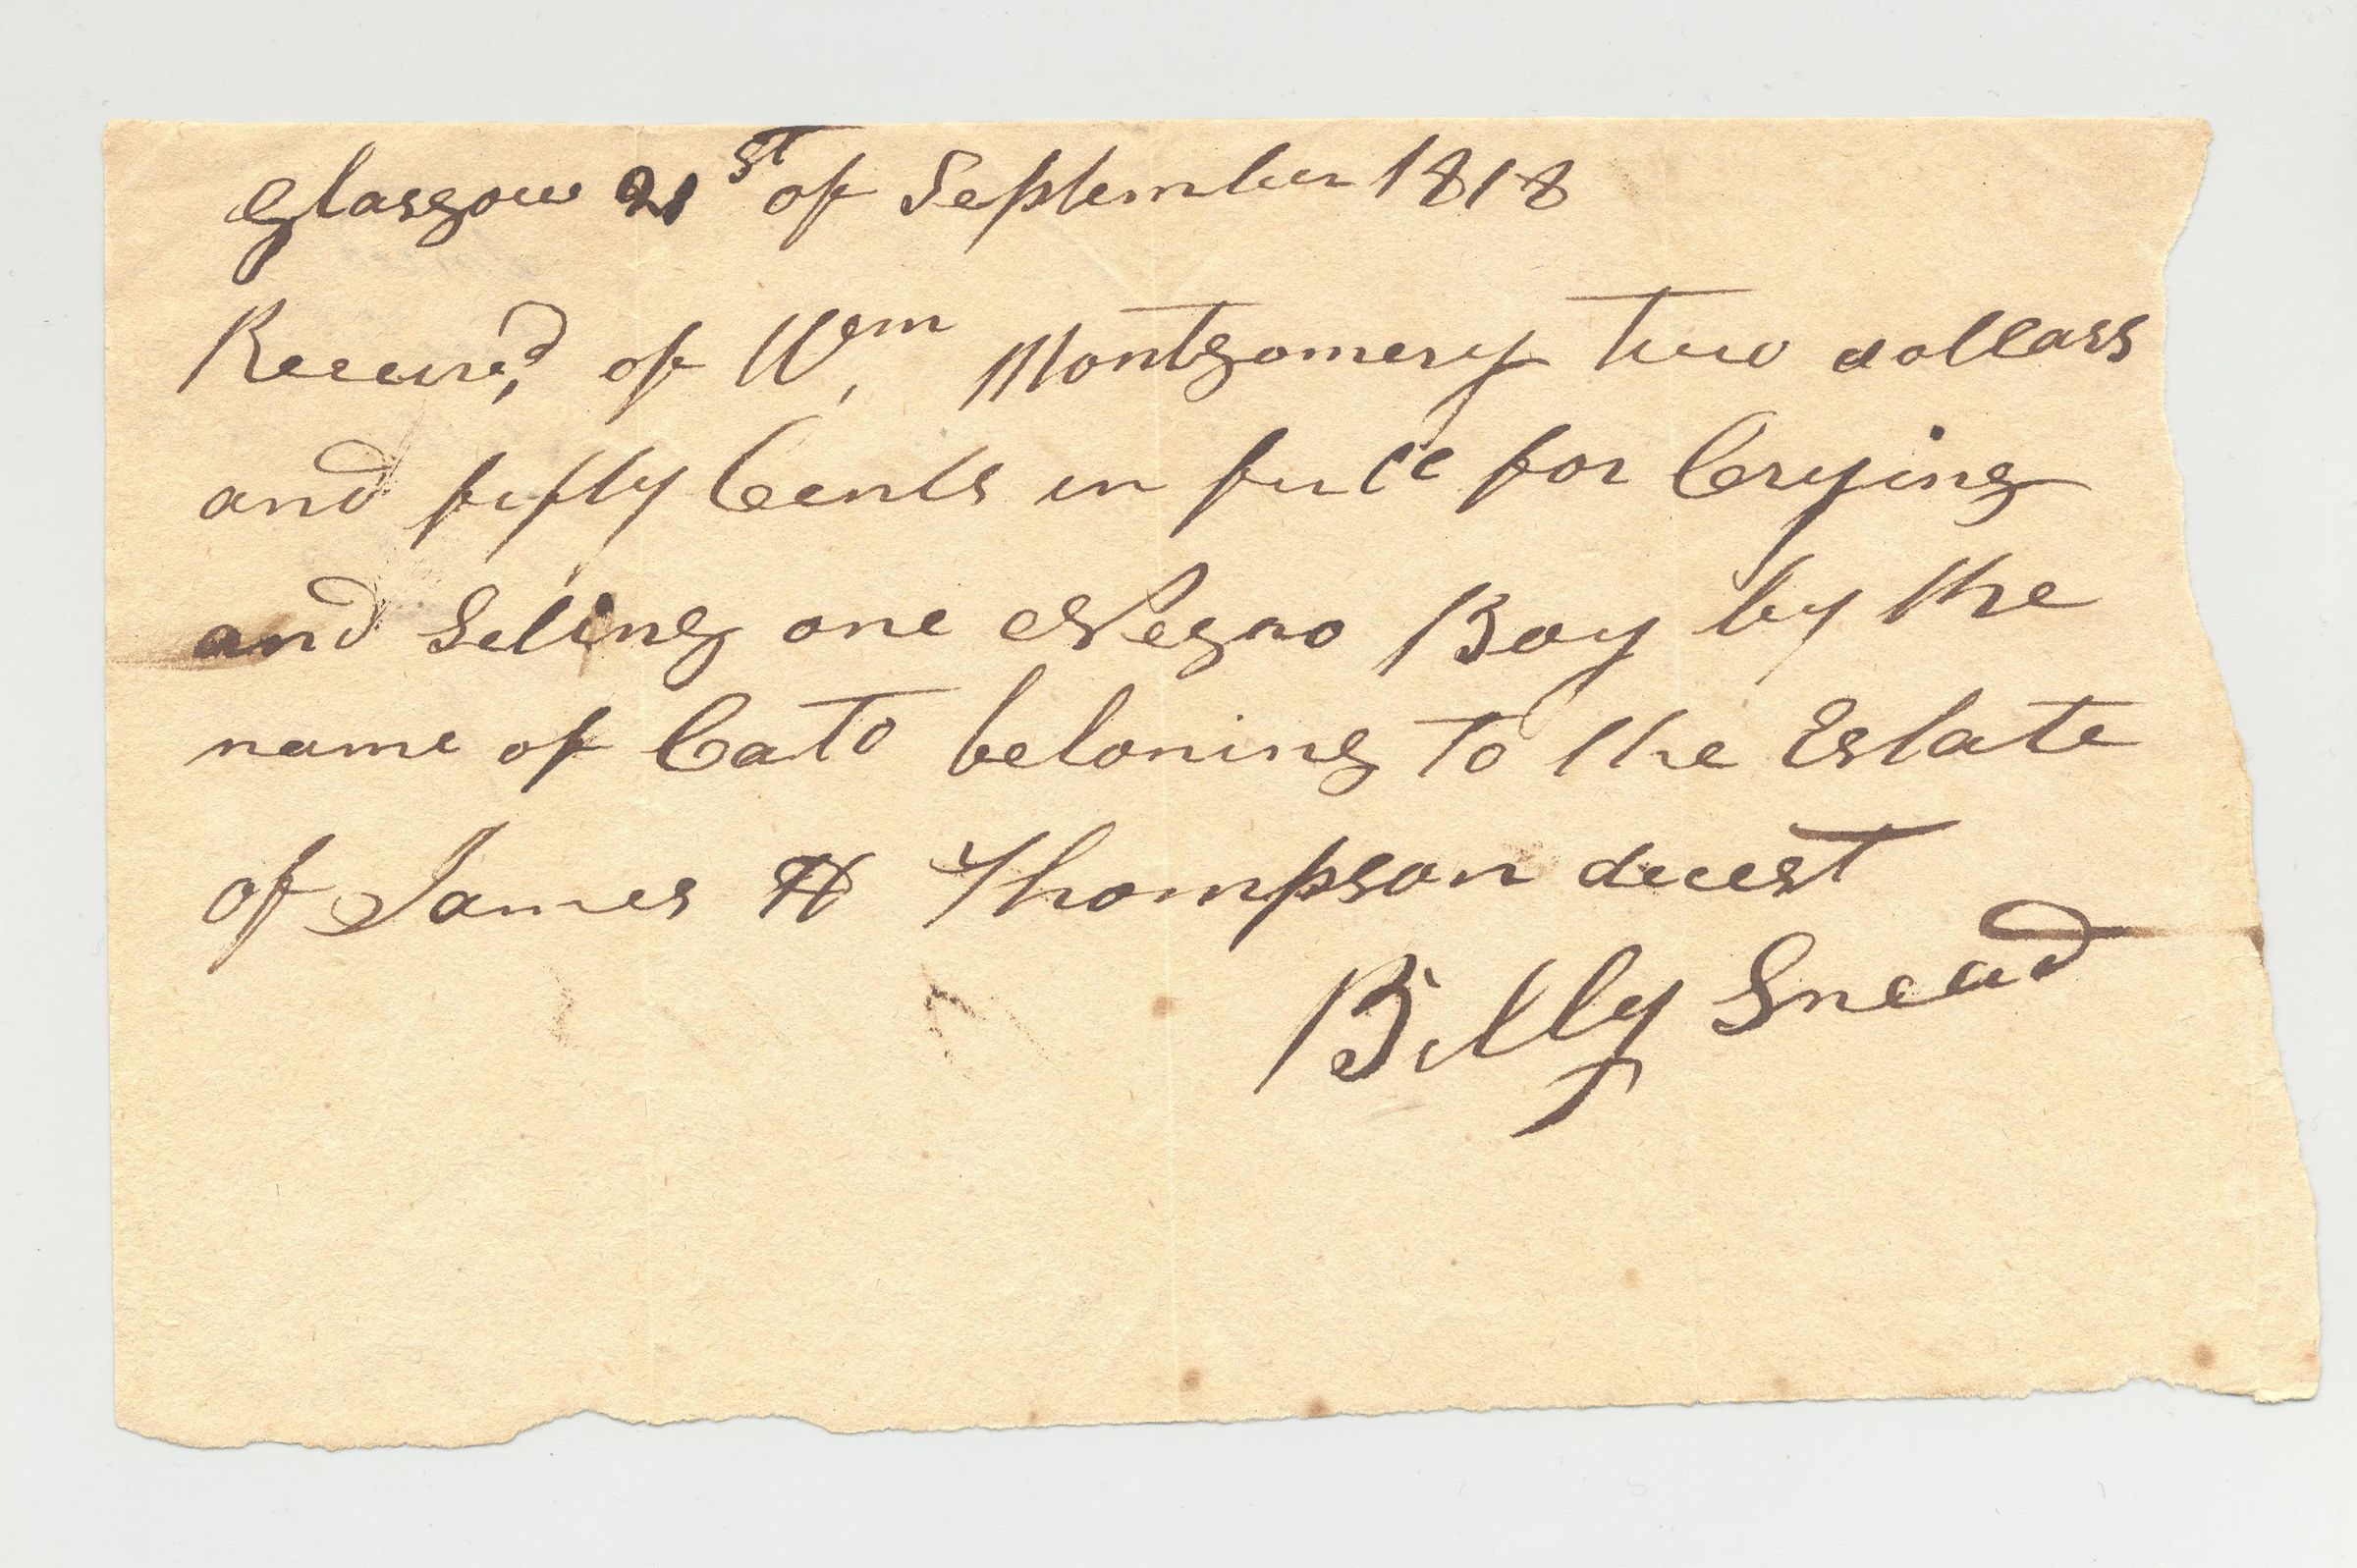 Glasgow 21st of September 1818
Receivd, of Wm, Montgomery two dollars
and fifty Cents in full for Crying
and Seling one Negro Boy by the
name of Cato beloning to the Estate
of James H Thompson decest
Billy Snead